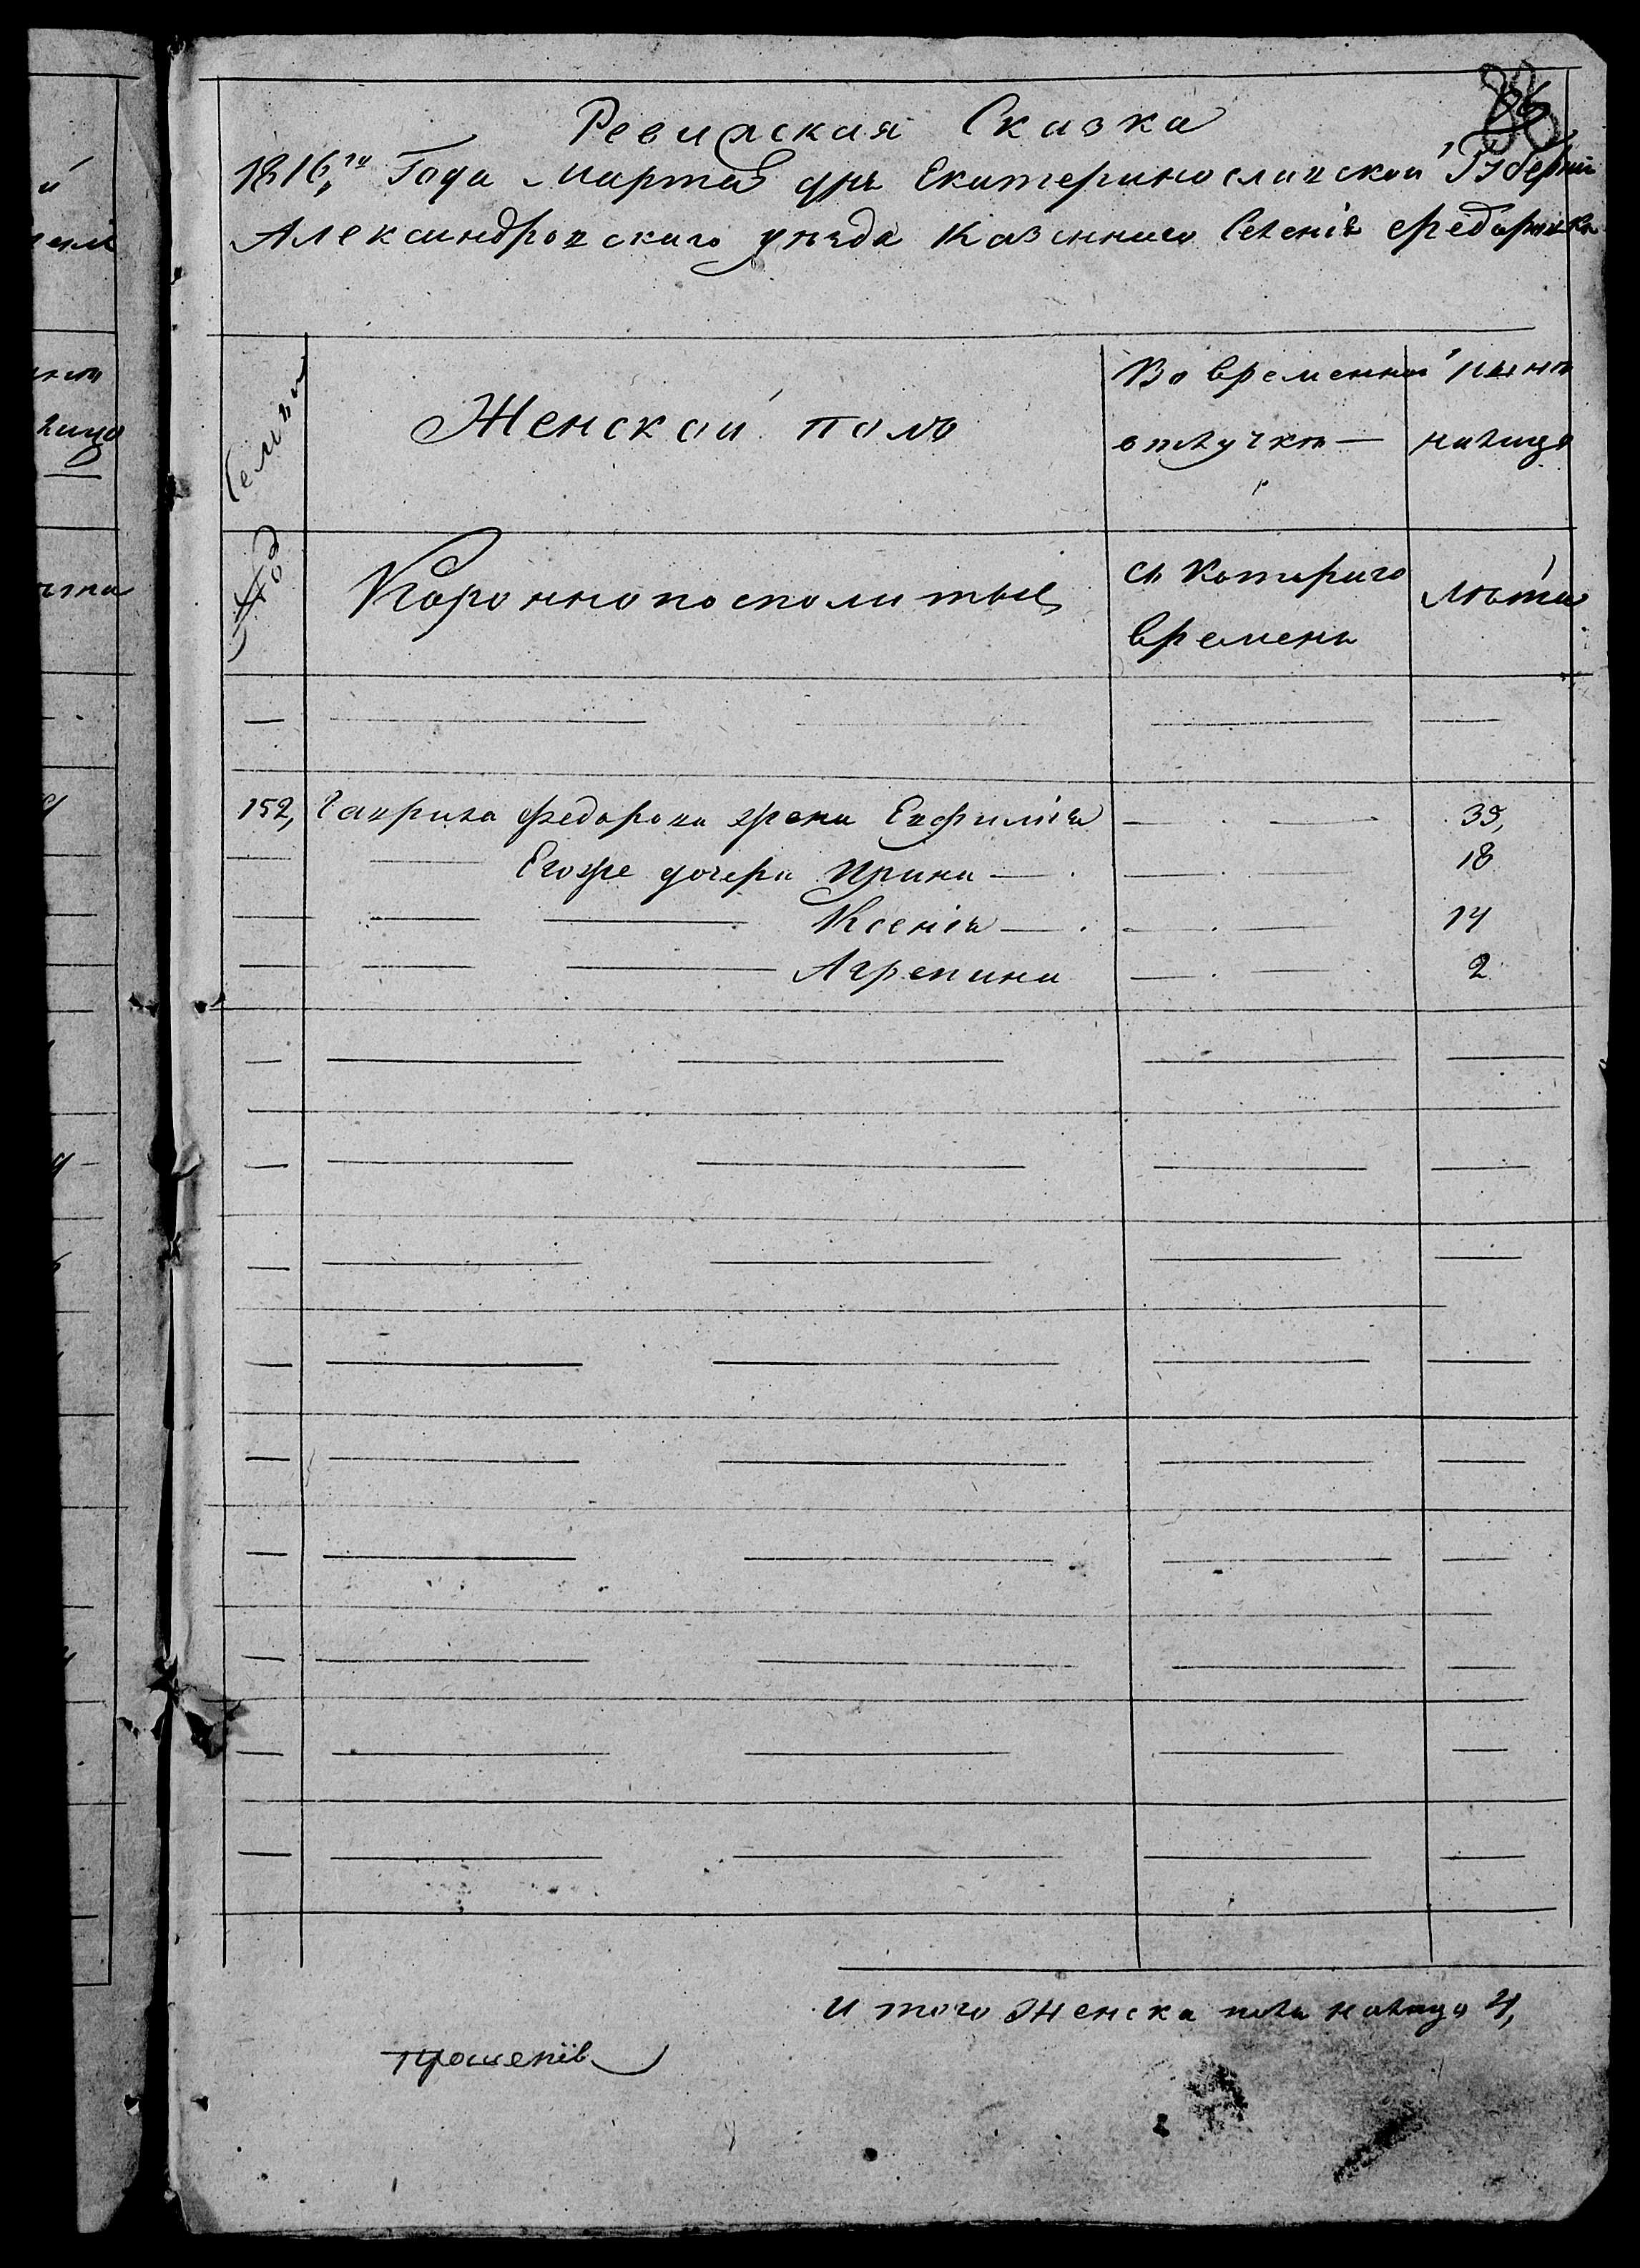 Ревиская Сказка
1816,го Года Марта дня Екатеринославской Губернии
Александровского уезда Казенного Селенія Федоровка
Женской полъ
Во временной отлучкѣ —
ныне налицо
Семьи
Короннопосполитые
съ Котораго времени
Лѣта
152, Гаврила Федорова жена Евфимія — . — 39,
Егоже дочери Ирина — . — 18
Ксенія — . — 14
Агрепина — . — 2
Итого Женска пола налицо 4,